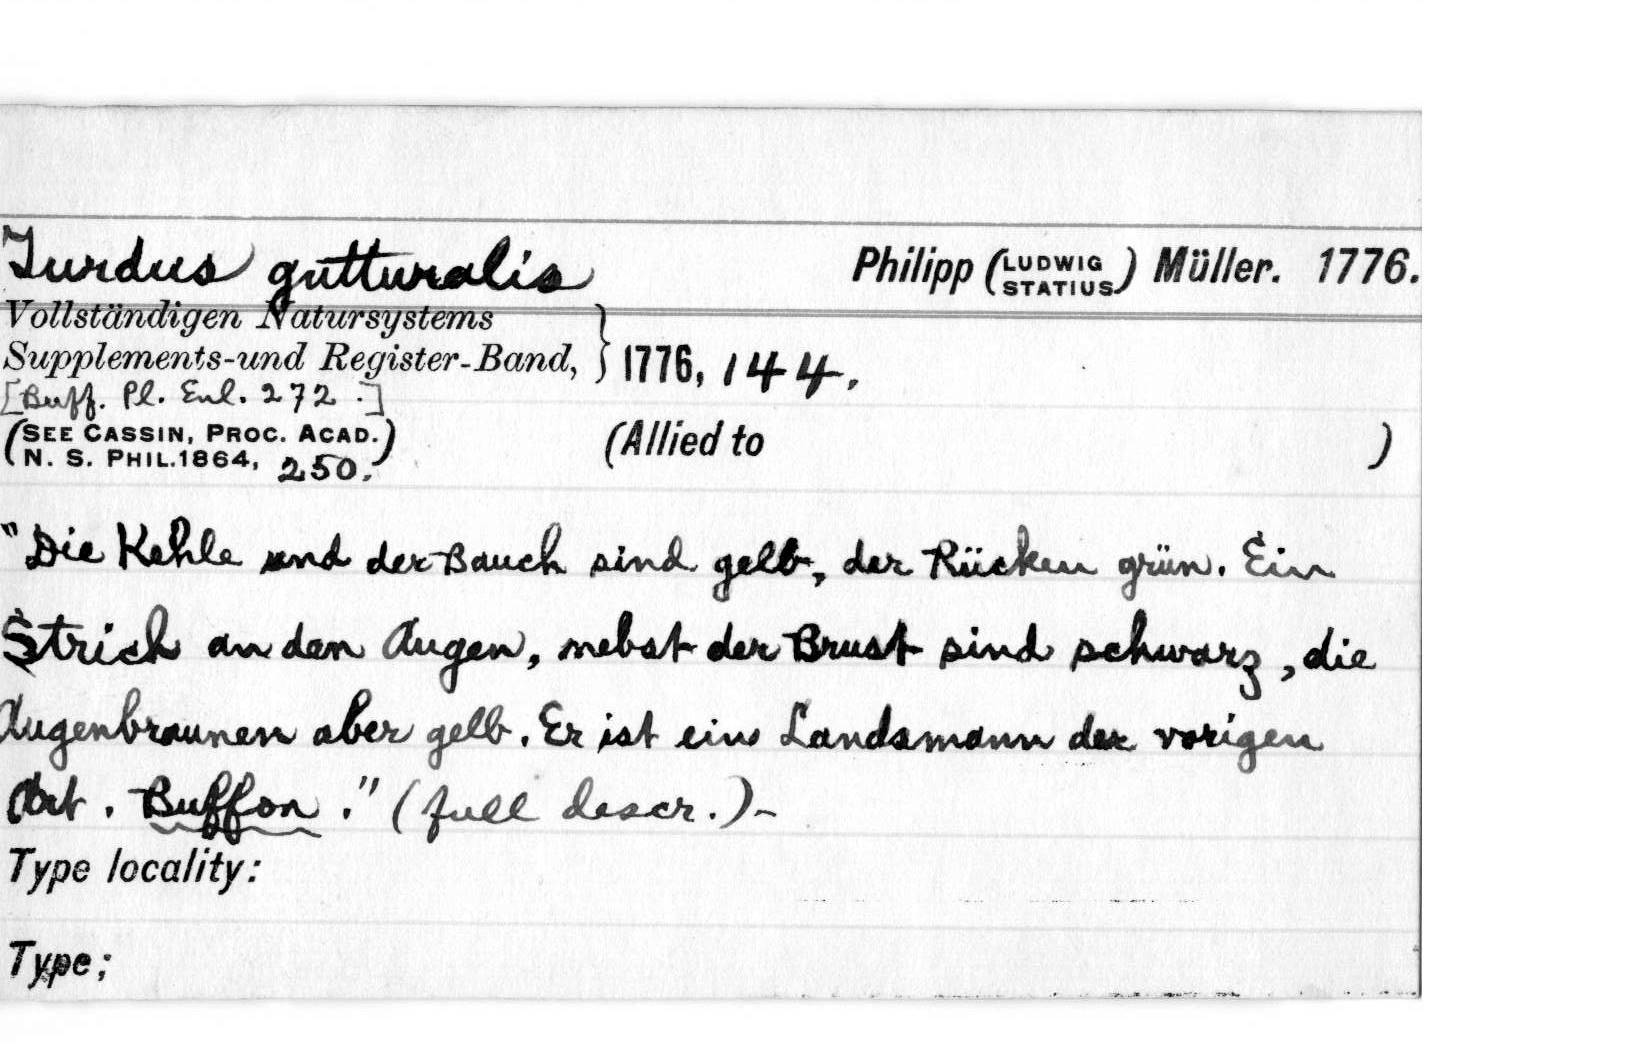 Turdus gutturalis Philipp (LUDWIG STATIUS) Müller. 1776.
Vollständigen Natursystems
Supplements-und Register-Band, } 1776, 144.
[Buff. Pl. Enl. 272.]
(SEE CASSIN, PROC. ACAD. (Allied to )
N. S. PHIL. 1864, 250.)
"Die Kehle und der Bauch sind gelb, der Rücken grün. Ein
Strich an den Augen, nebst der Brust sind schwarz, die
Augenbraunen aber gelb. Er ist ein Landsmann der vorigen
Art. Buffon." (full descr.)-
Type locality:
Type;